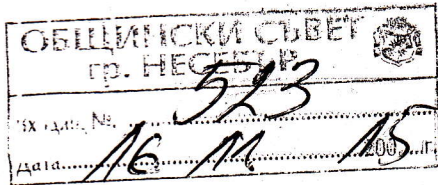 ОБЩИНСКИ СЪВЕТ
гр. НЕСЕБЪР
Вх. инд. № 523
Дата 16 11 15 200 г.